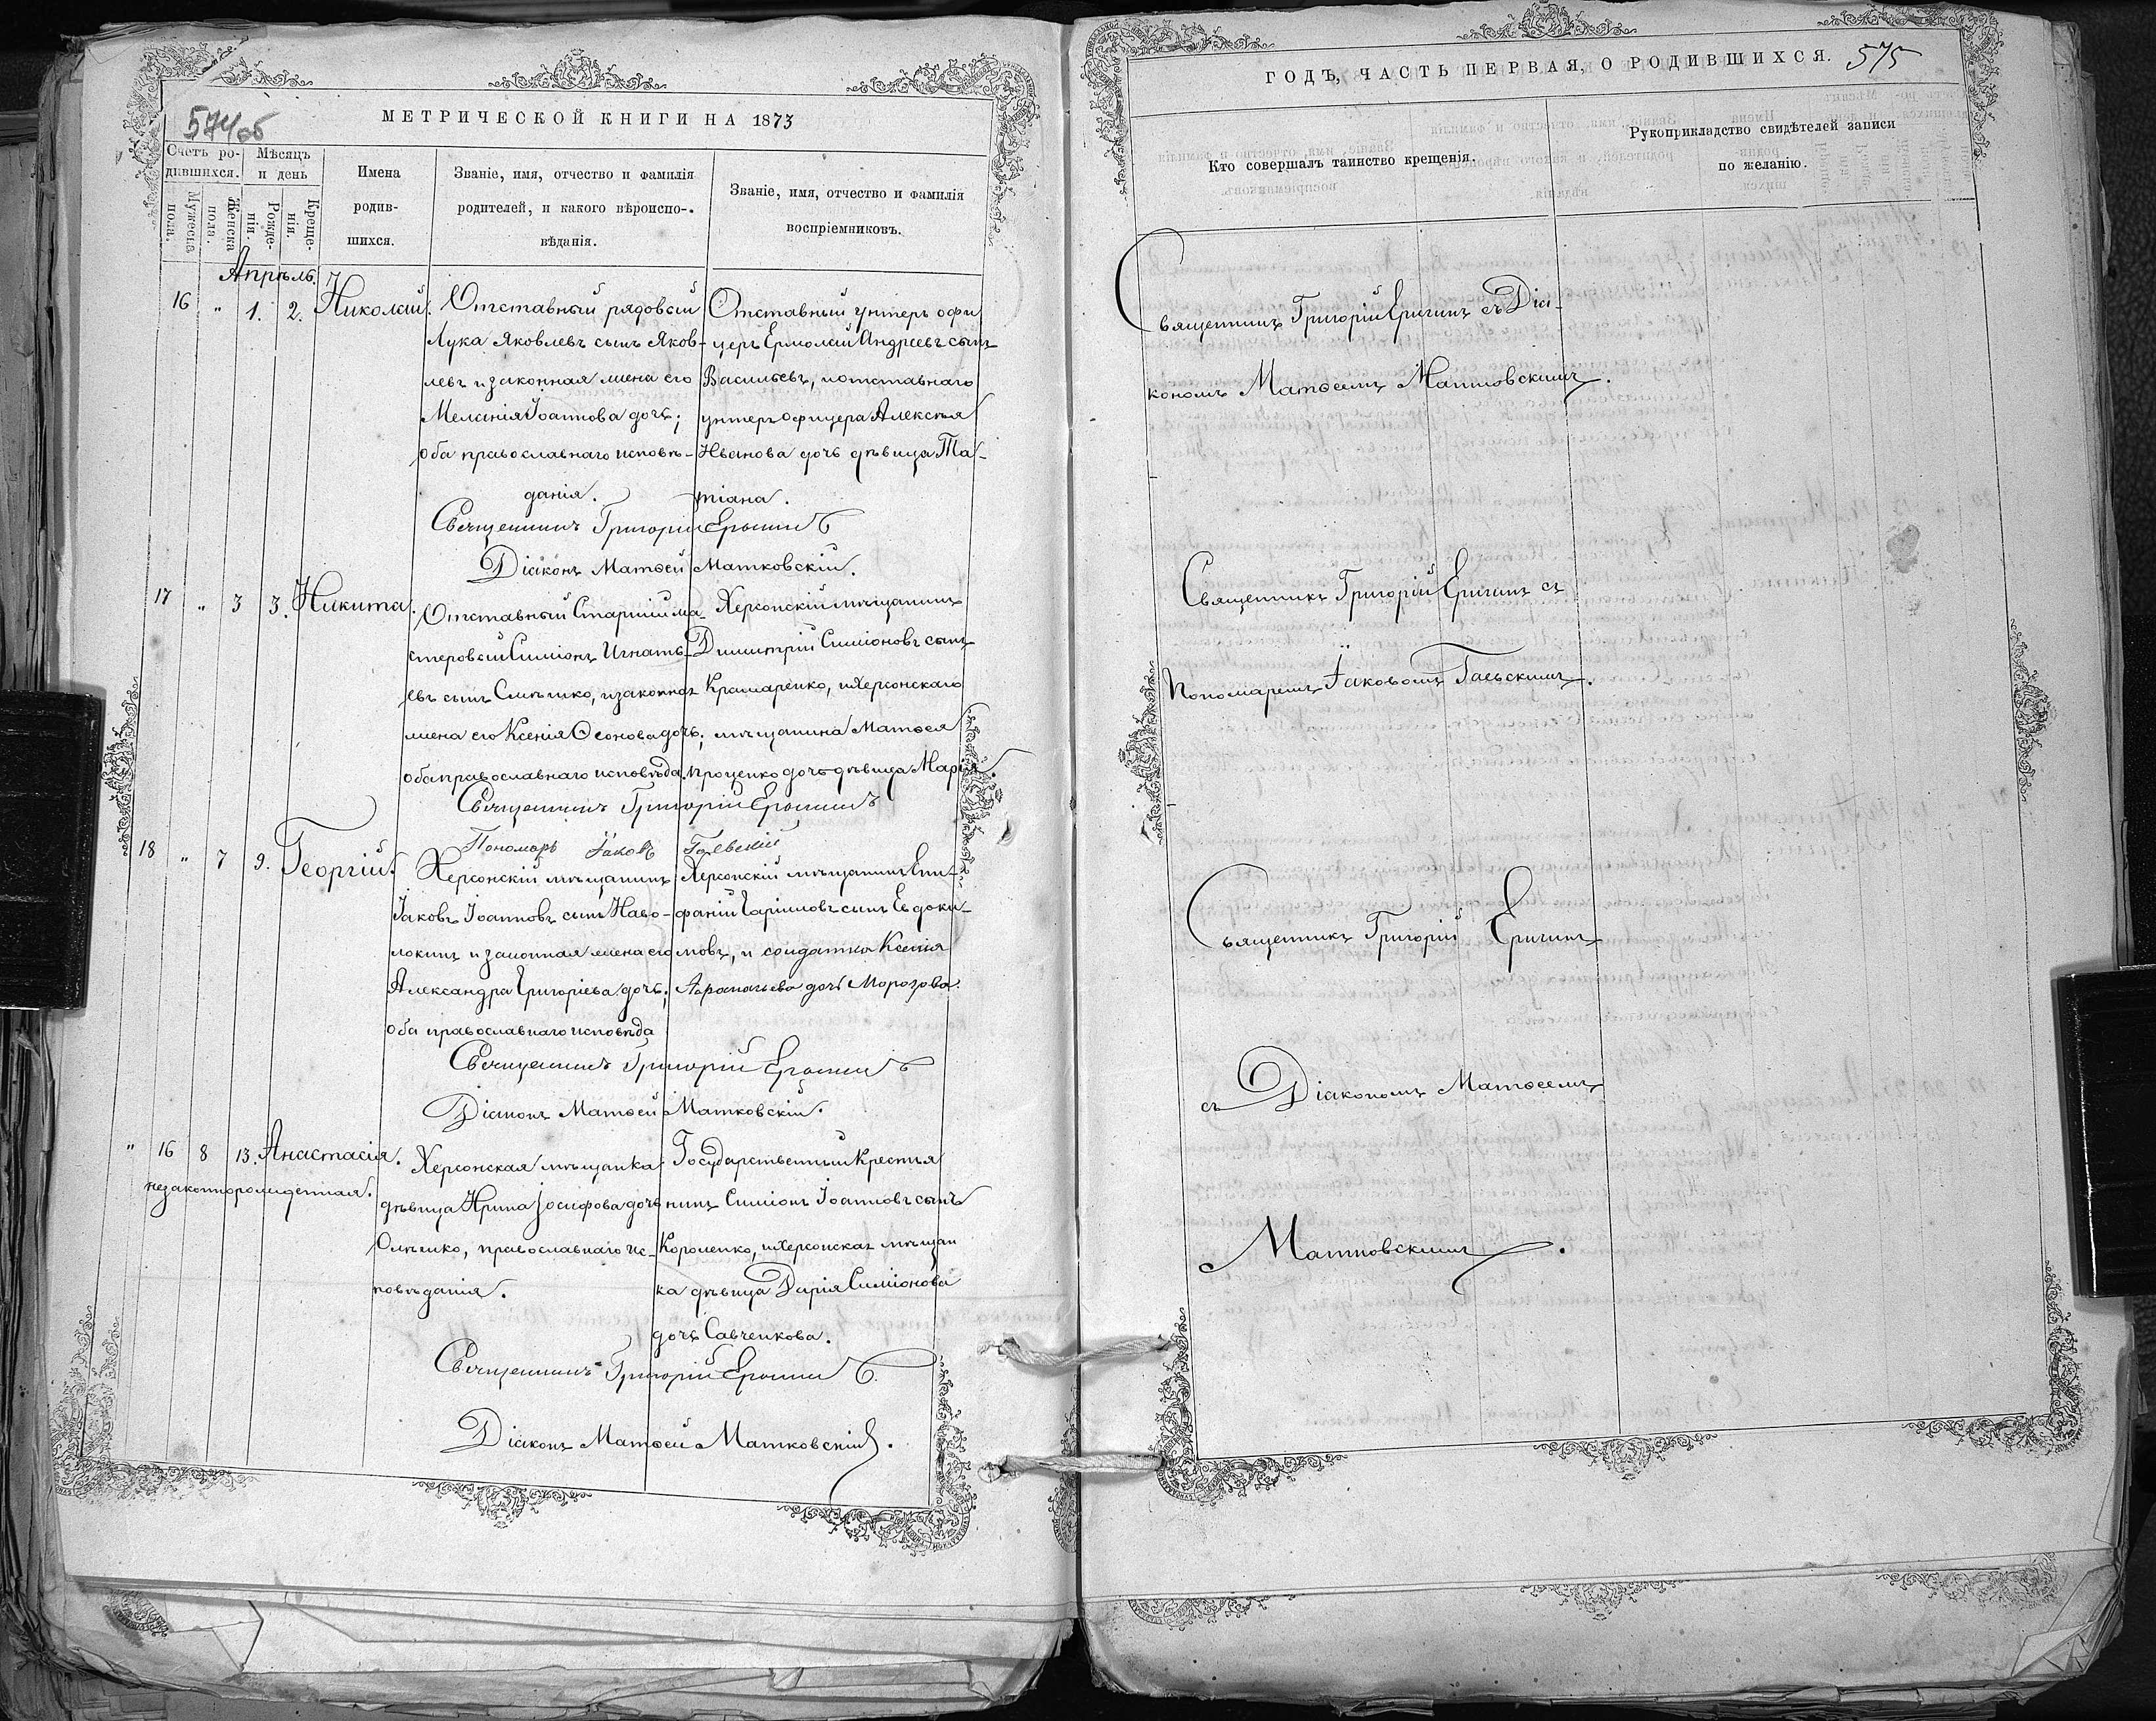 574об
МЕТРИЧЕСКОЙ КНИГИ НА 1873
Счетъ ро-
дившихся.
Мужеска
пола.
Женска
пола.
Мѣсяцъ
и день
Рожде-
нія.
Креще-
нія.
Имена
родив-
шихся.
Званіе, имя, отчество и фамилія
родителей, и какого вѣроиспо-
вѣданія.
Званіе, имя, отчество и фамилія
воспріемниковъ.
Апрѣль.
16 " 1. 2. Николай.
Отставный рядовой
Лука Яковлевъ сынъ Яков-
левъ и законная жена его
Меланія Іоаннова дочь;
оба православнаго исповѣ-
данія.
Отставный унтеръ офи
церъ Ермолай Андреевъ сынъ
Васильевъ, и отставнаго
унтеръ офицера Алексѣя
Иванова дочь дѣвица Та-
тіана.
Священникъ Григорій Ерогинъ
Діаконъ Матѳей Матковскій.
17 " 3 3. Никита.
Отставный Старшій ма-
стеровой Симіонъ Игнать-
евъ сынъ, и законная
жена его Ксенія Ѳеонова дочь;
оба православнаго исповѣда.
Херсонскій мѣщанинъ
Димитрій Симіоновъ сынъ
Крамаренко, и Херсонскаго
мѣщанина Матѳея
Проценко дочь дѣвица Марія.
Священникъ Григорій Ерогинъ
Пономарь Іаковъ Гаевскій
18 " 7 9. Георгій.
Херсонскій мѣщанинъ
Іаковъ Іоанновъ сынъ Наво-
локинъ и законная жена его
Александра Григоріева дочь;
оба православнаго исповѣда
Херсонскій мѣщанинъ Епи-
фаній Гаріиловъ сынъ Евдоки-
мовъ, и солдатка Ксенія
дочь Морозова.
Священникъ Григорій Ерогинъ
Діаконъ Матѳей Матковскій.
" 16 8 13. Анастасія.
незаконнорожденная.
Херсонская мѣщанка
дѣвица Ирина Іосифова дочь
Олѣшко, православнаго ис-
повѣданія.
Государственный Крестья
нинъ Симіонъ Іоанновъ сынъ
Короленко, и Херсонская мѣщан
ка дѣвица Дарія Симіонова
дочь Савченкова.
Священникъ Григорій Ерогинъ.
Діаконъ Матѳей Матковскій.
ГОДЪ, ЧАСТЬ ПЕРВАЯ, О РОДИВШИХСЯ. 575
Кто совершалъ таинство крещенія.
Рукоприкладство свидѣтелей записи
по желанію.
Священникъ Григорій Еригинъ съ Діа-
кономъ Матѳеемъ Матковскимъ.
Священникъ Григорій Еригинъ съ
Пономаремъ Іаковомъ Гаевскимъ.
Священникъ Григорій Еригинъ
съ Діакономъ Матѳеемъ
Матковскимъ.